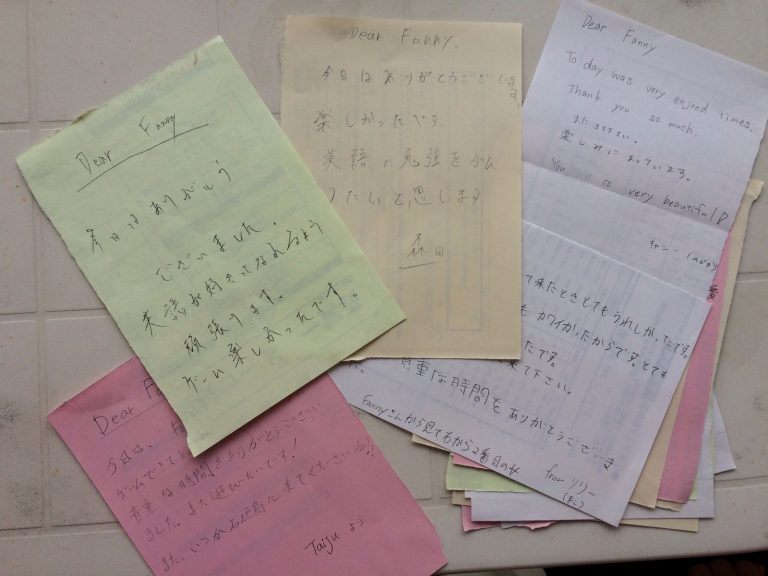 Dear Fanny
今日はありがとう
ございました。
英語が好きになれるよう
頑張ります。
ゲーム楽しかったです。
Dear Fanny.
今日はありがとうございます
楽しかったです.
英語の勉強をがん
りたいと思います
森田
Dear Fanny
To day was very enjoed times.
Thank you so much.
また
楽しみにまっています。
is very beautiful
て来たときとてもうれしかったです。
も カワイかったからです。とても
たです。
来て下さい。
貴重な時間をありがとうございま
Fannyさんから見て
from リリー
Dear Fa
今日は、
ゲームできて
貴重な時間をありがとうござい
ました。また遊びたいです!
また、いつか
に来てくださいね!
Taiju より